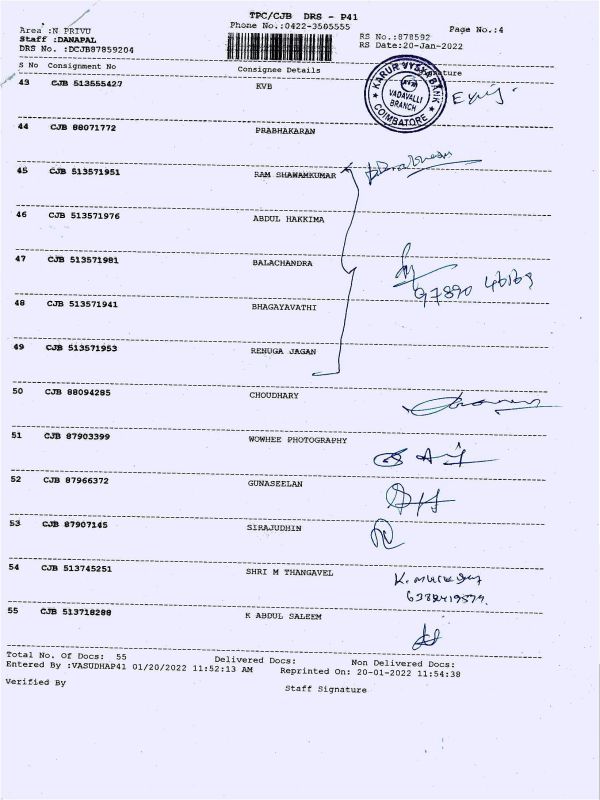 TPC/CJB DRS - P41
Phone No.:0422-3505555 Page No.:4
Area :N PRIVU
Staff :DANAPAL RS No.:878592
DRS No. :DCJB87859204 RS Date:20-Jan-2022
S No Consignment No Consignee Details Signature
43 CJB 513555427 KVB
KARUR VYSYA BANK
VADAVALLI
BRANCH
COIMBATORE
44 CJB 88071772 PRABHAKARAN
45 CJB 513571951 RAM SHAWAMKUMAR
46 CJB 513571976 ABDUL HAKKIMA
47 CJB 513571981 BALACHANDRA
97890 46169
48 CJB 513571941 BHAGAYAVATHI
49 CJB 513571953 RENUGA JAGAN
50 CJB 88094285 CHOUDHARY
51 CJB 87903399 WOWHEE PHOTOGRAPHY
52 CJB 87966372 GUNASEELAN
53 CJB 87907145 SIRAJUDHIN
54 CJB 513745251 SHRI M THANGAVEL
55 CJB 513718288 K ABDUL SALEEM
Total No. Of Docs: 55 Delivered Docs: Non Delivered Docs:
Entered By :VASUDHAP41 01/20/2022 11:52:13 AM Reprinted On: 20-01-2022 11:54:38
Verified By Staff Signature